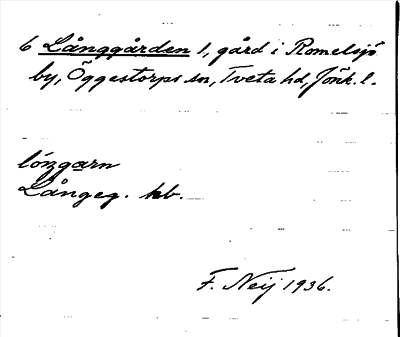 6 Långgården 1, gård i Romelsjö
by, Öggestorps sn, Tveta hd, Jönk. l.
lóŋgarn
Långeg. kb.
F. Neij 1936.